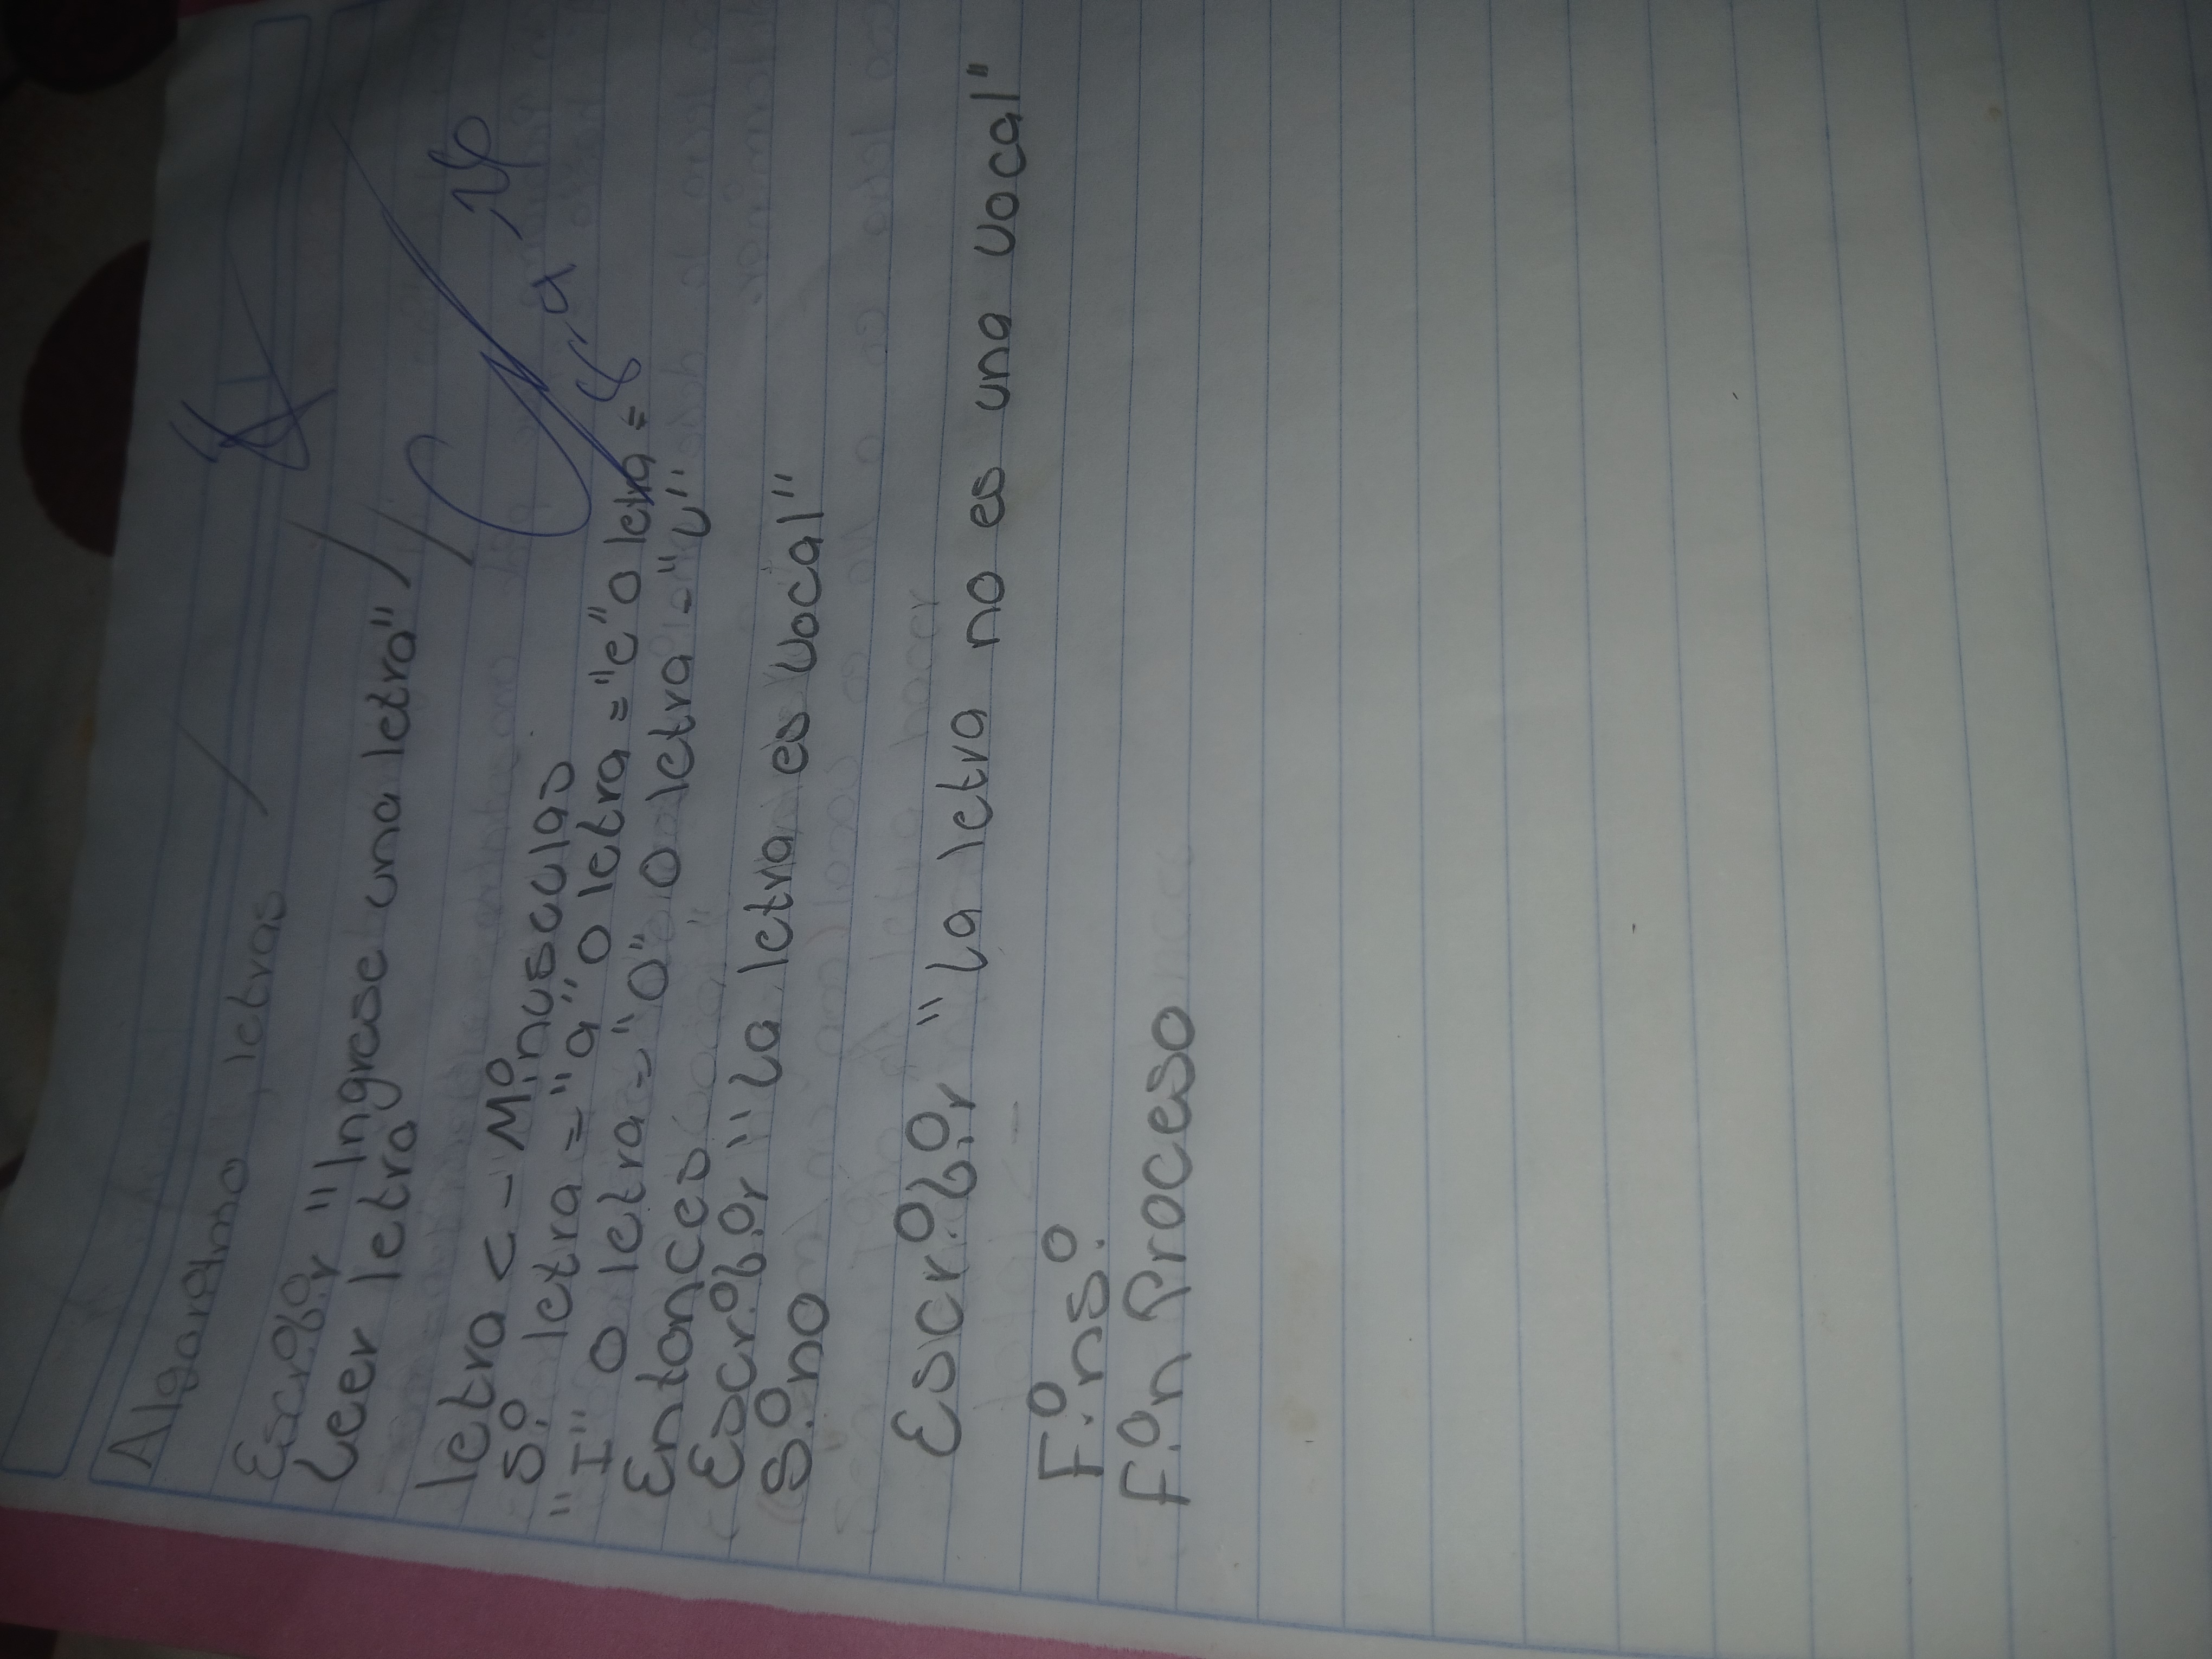 Algoritmo letras
Escribir "Ingrese una letra"
Leer letra
letra <- Minusculas
Si letra = "a" o letra = "e" o letra =
"I" o letra = "o" o letra = "u"
Entonces
Escribir "La letra es vocal"
Sino
Escribir "La letra no es una vocal"
Finsi
Fin Proceso